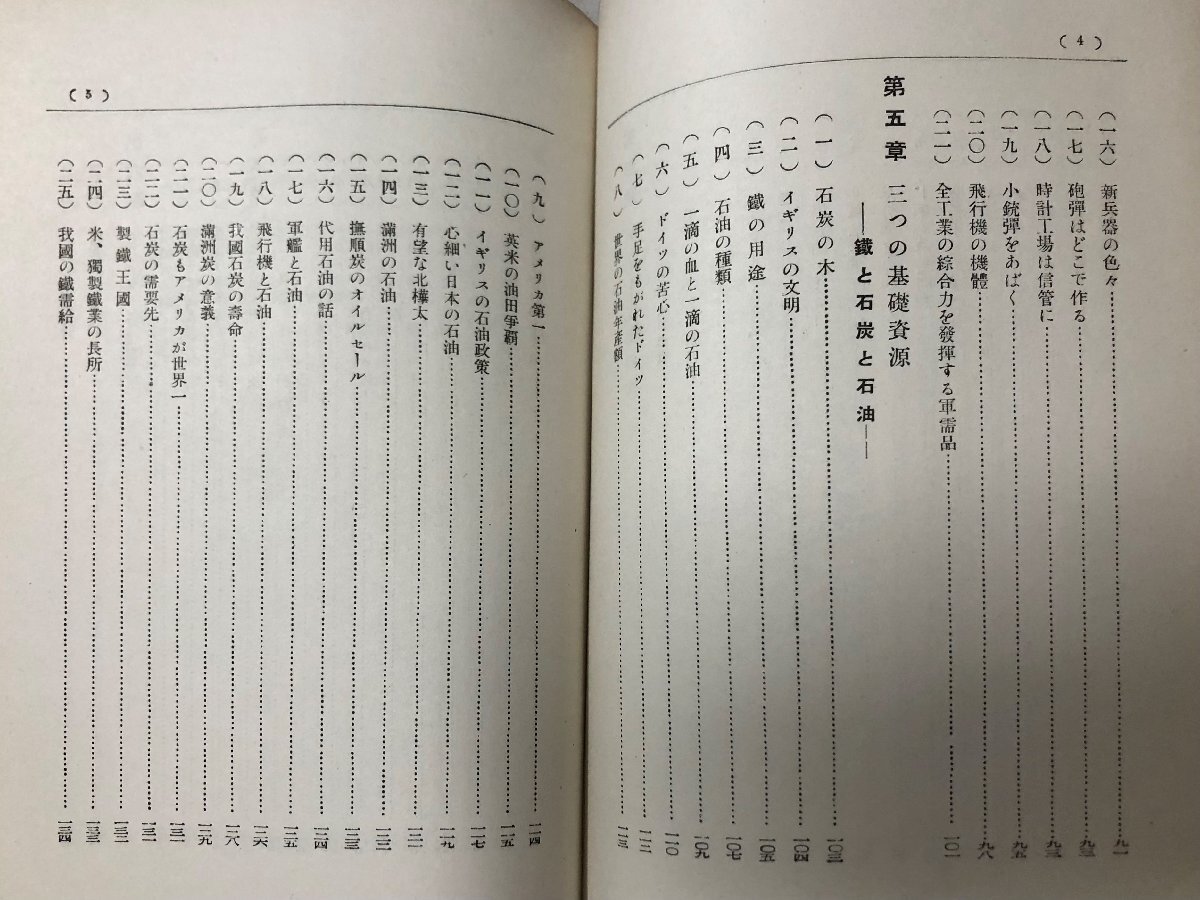 ( 4 )
(一六) 新兵器の色々……九一
(一七) 砲彈はどこで作る……九三
(一八) 時計工場は信管に……九三
(一九) 小銃彈をあばく……九五
(二〇) 飛行機の機體……九八
(二一) 全工業の綜合力を發揮する軍需品……一〇一
第五章 三つの基礎資源
――鐵と石炭と石油――
(一) 石炭の木……一〇三
(二) イギリスの文明……一〇四
(三) 鐵の用途……一〇五
(四) 石油の種類……一〇七
(五) 一滴の血と一滴の石油……一〇九
(六) ドイツの苦心……一一〇
(七) 手足をもがれたドイツ……一一二
(八) 世界の石油年產額……一一三
( 5 )
(九) アメリカ第一……一一四
(一〇) 英米の油田爭覇……一一五
(一一) イギリスの石油政策……一一七
(一二) 心細い日本の石油……一一九
(一三) 有望な北樺太……一二一
(一四) 滿洲の石油……一二二
(一五) 撫順炭のオイルセール……一二三
(一六) 代用石油の話……一二四
(一七) 軍艦と石油……一二五
(一八) 飛行機と石油……一二六
(一九) 我國石炭の壽命……一二八
(二〇) 滿洲炭の意義……一二九
(二一) 石炭もアメリカが世界一……一三一
(二二) 石炭の需要先……一三一
(二三) 製鐵王國……一三二
(二四) 米、獨製鐵業の長所……一三三
(二五) 我國の鐵需給……一三四